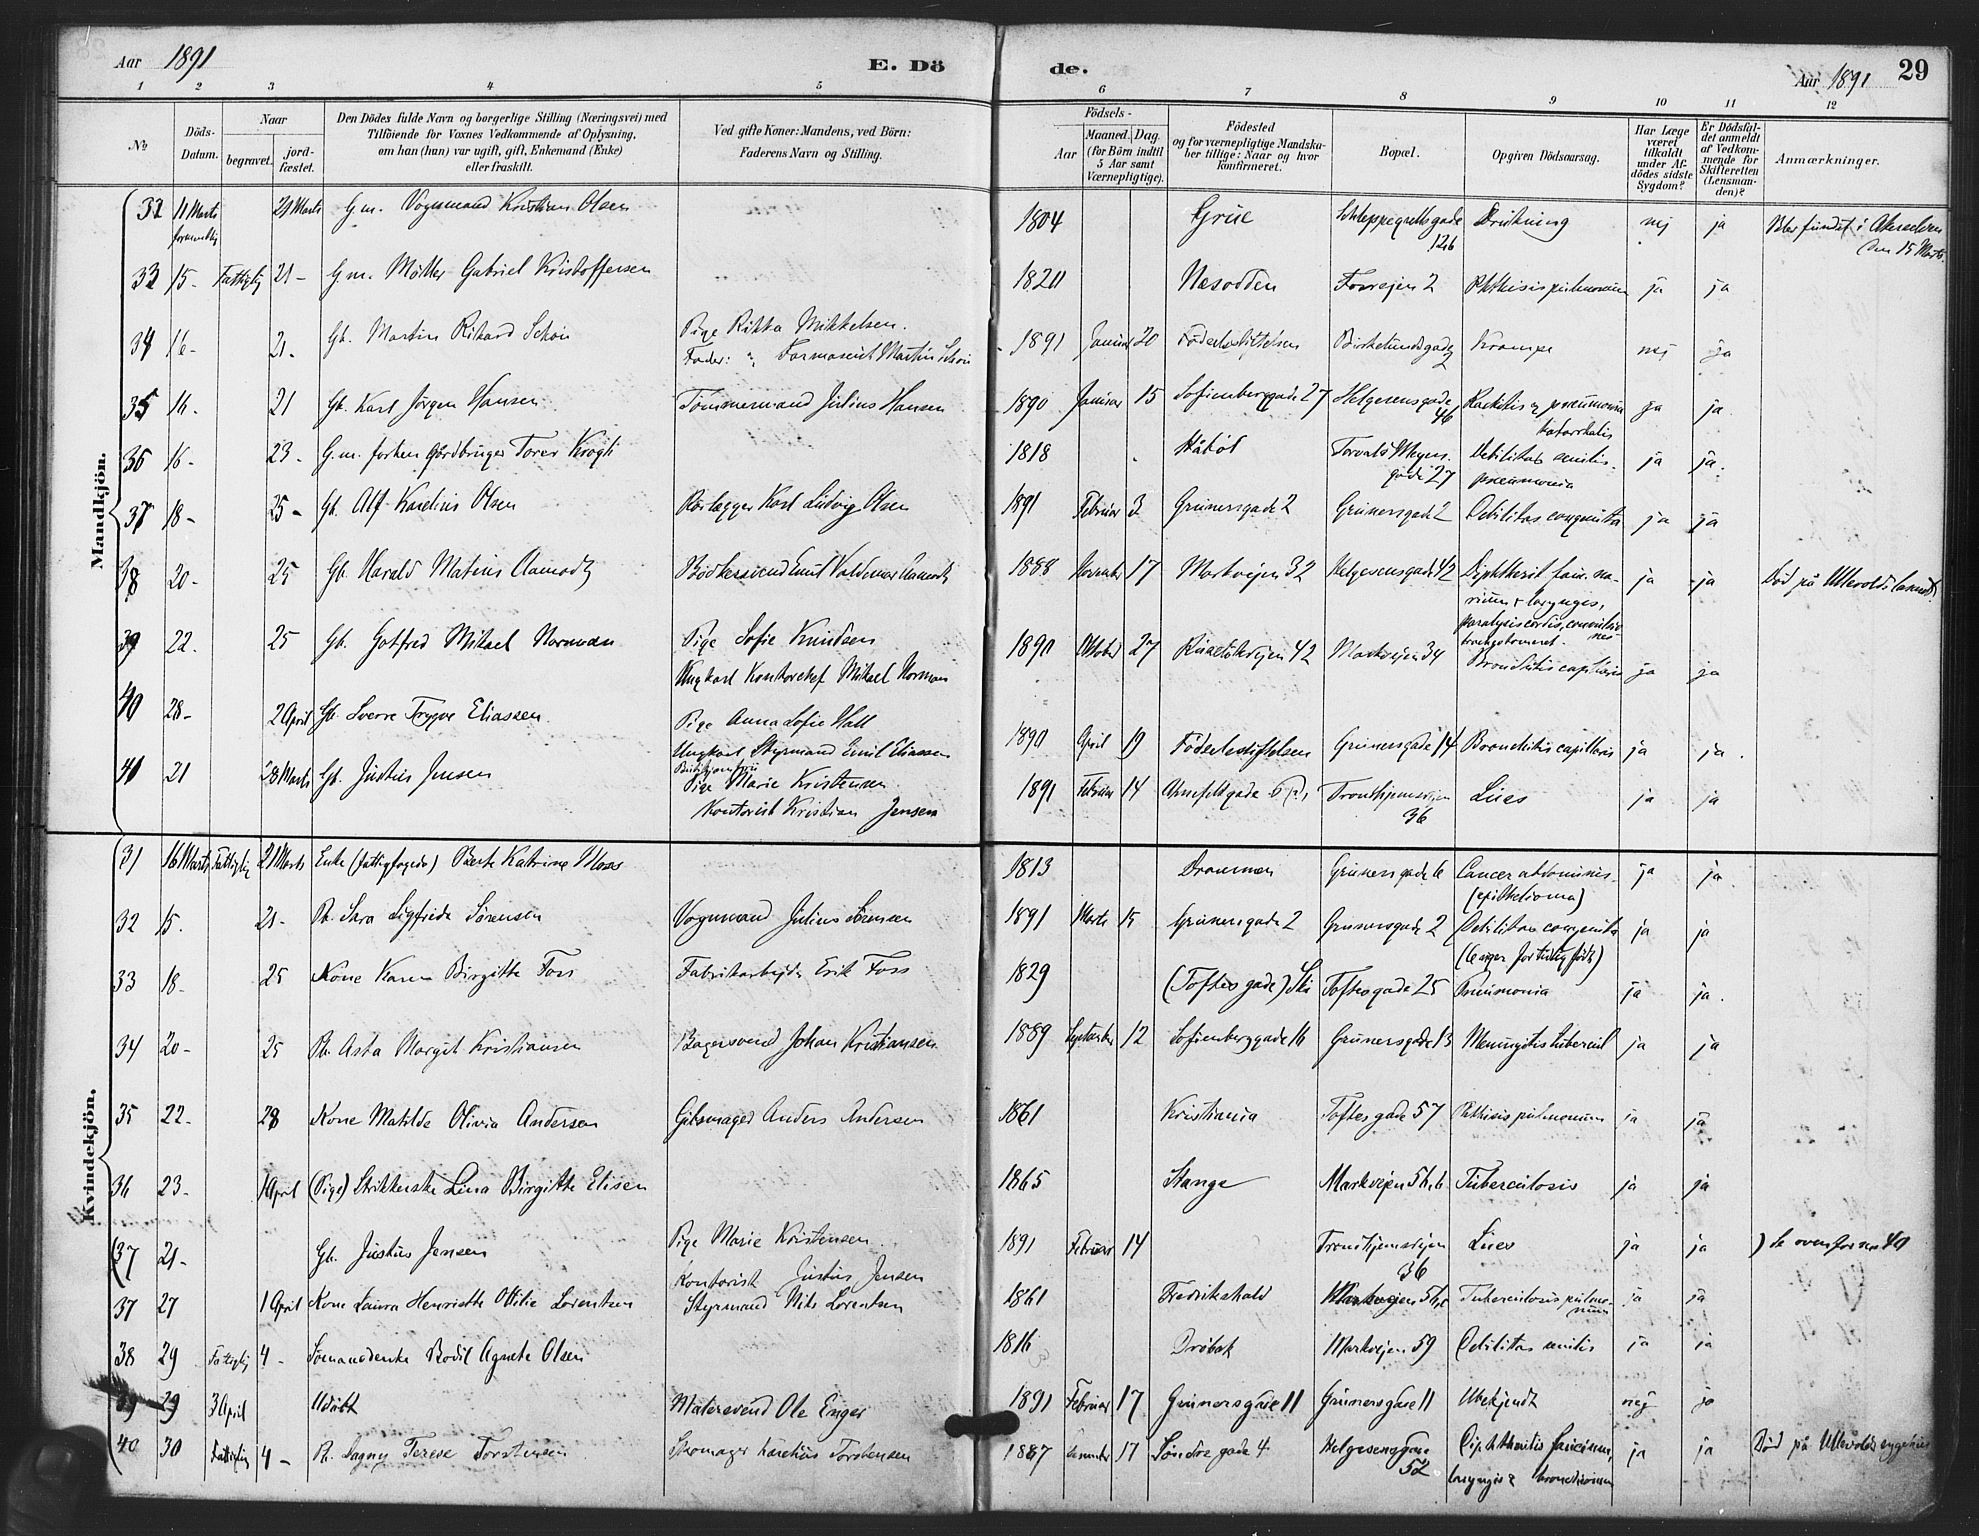 Aar 1891 E. Dö de. Aar 1891 29
1 2 3 4 5 6 7 8 9 10 11 12
No
Döds-Datum.
Naar
begravet.
jord-fæstet.
Den Dödes fulde Navn og borgerlige Stilling (Næringsvei) med
Tilföiende for Voxnes Vedkommende af Oplysning,
om han (han) var ugift, gift, Enkemand (Enke)
eller fraskilt.
Ved gifte Koner: Mandens, ved Börn:
Faderens Navn og Stilling.
Födsels-
Aar
Maaned.
Dag.
(for Börn indtil
5 Aar samt
Værnepligtige).
Födested
og for værnepligtige Mandska-
ber tillige: Naar og hvor
konfirmeret.
Bopæl.
Opgiven Dödsaarsag.
Har Læge
været
tilkaldt
under Af-
dödes sidste
Sygdom?
Er Dödsfal-
det anmeldt
af Vedkom-
mende for
Skifteretten
(Lensman-
den)?
Anmærkninger.
Mandkjön.
32 11 Marts 21 Marts G. m. Vognmand Kristian Olsen 1804 Grue 126 Drukning nej ja Blev fundet i Akerselven
den 15 Marts.
33 15- Fattiglig 21- G. m. Möller Gabriel Kristoffersen 1820 Næsodden Fossvejen 2 Phthisis pulmonum ja ja
34 16- 21- Gb. Martin Rikard Schön Pige Rikka Mikkelsen. 1891 Januar 20 Födselsstiftelsen Birkelundsgade Krampe nej ja
Fader: Martin Schön
35 16- 21 Gb. Karl Jörgen Hansen Tömmermand Julius Hansen 1890 Januar 15 Sofienberggade 27 Helgesensgade 46 Rachitis & pneumonia katarrhalis ja ja
36 16- 23- G. m. forhen Gårdbruger Torer Krogh 1818 Håböl Torvald Meyers gade 27 Debilitas senilis. pneumonia ja ja.
37 18- 25- Gb. Alf Karelius Olsen Rörlægger Karl Ludvig Olsen 1891 Februar 3 Grünersgade 2 Grünersgade 2 Debilitas congenita ja ja
38 20- 25 Gb. Harald Matius Aamodt Bödkersvend Emil Valdemar Aamodt 1888 November 17 Markvejen 32 Helgesensgade 42 Diphtherit. faucium, narium & laryngis, paralysis cordis, ja ja Död på Ullevolds lasaret.
39 22. 25 Gb. Gotfred Mikael Norman Pige Sofie Knudsen 1890 Oktober 27 42 Markvejen 34 Bronchitis capillaris ja ja
Ungkarl Kontorchef Mikael Norman
40 28- 2 April Gb. Sverre Trygve Eliassen Pige Anna Sofie Hall 1890 April 19 Födselsstiftelsen Grünersgade 14 Bronchitis capillaris ja ja.
Ungkarl Styrmand Emil Eliassen
41 21 28 Marts Gb. Justus Jensen Pige Marie Kristensen 1891 Februar 14 Trondhjemsvejen 36 Lues ja ja
Kontorist Kristian Jensen
Kvindekjön.
31 16 Marts Fattiglig 21 Marts Enke Berte Katrine Moss 1813 Drammen Grünersgade 6 Cancer abdominis. (epithelioma) ja ja
32 15. 21- Pb. Sara Sigfride Sörensen Vognmand Julius Sörensen 1891 Marts 15 Grünersgade 2 Grünersgade 2 Debilitas congenita ja ja
33 18- 25 Kone Karen Birgitte Foss Fabrikarbejder Erik Foss 1829 (Toftes gade) Ski Toftesgade 25 Pneumonia ja ja.
34 20- 25 Pb. Asta Margit Kristiansen Bagersvend Johan Kristiansen 1889 September 12 Sofienberggade 16 Grünersgade 13 Meningitis tubercul ja ja
35 22- 28 Kone Matilde Olivia Andersen Gibsmager Anders Andersen 1861 Kristiania Toftes gade 57 Phthisis pulmonum ja ja
36 23- 1 April (Pige) Strikkerske Lina Birgitte Elisen 1865 Stange Markvejen 56,b Tuberculosis ja ja
(37 21- Gb. Justus Jensen Pige Marie Kristensen 1891 Februar 14 Trondhjemsvejen 36 Lues ja ja ) Se ovenfor no 40
Kontorist Justus Jensen
37 27 1 April Kone Laura Henriette Ottilie Lorentzen Styrmand Nils Lorentzen 1861 Fredrikshald Markvejen Tuberculosis pulmonum ja ja
38 29 Fattiglig 4- Sömandsenke Bodil Agnete Olsen 1816 Dröbak Markvejen 59 Debilitas senilis ja ja
39 29 3 April Udöbt Malersvend Ole Enger 1891 Februar 17 Grünersgade 11 Grünersgade 11 Ubekjendt nej ja
40 30 Fattiglig 4- Pb. Dagny Terese Torstensen Skomager Karelius Torstensen 1887 17 Söndre gade 4. Helgesensgade 52 Diphtheritis faucium, laryngis & bronchiorum ja ja Död på Ullevolds sygehus